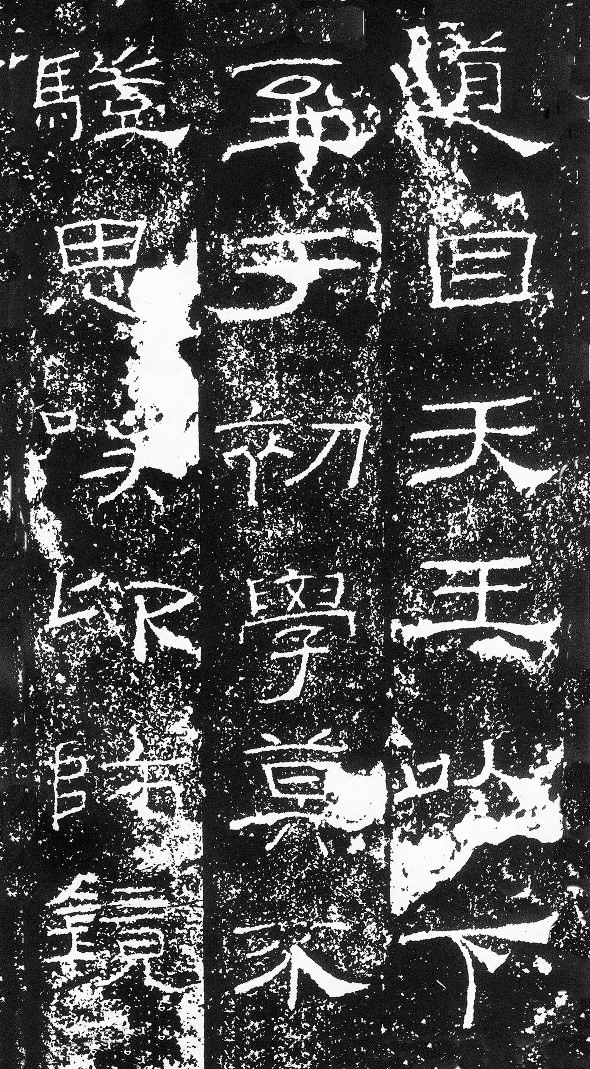 道自天王以下
至于初學莫不
驥思嘆卬師鏡